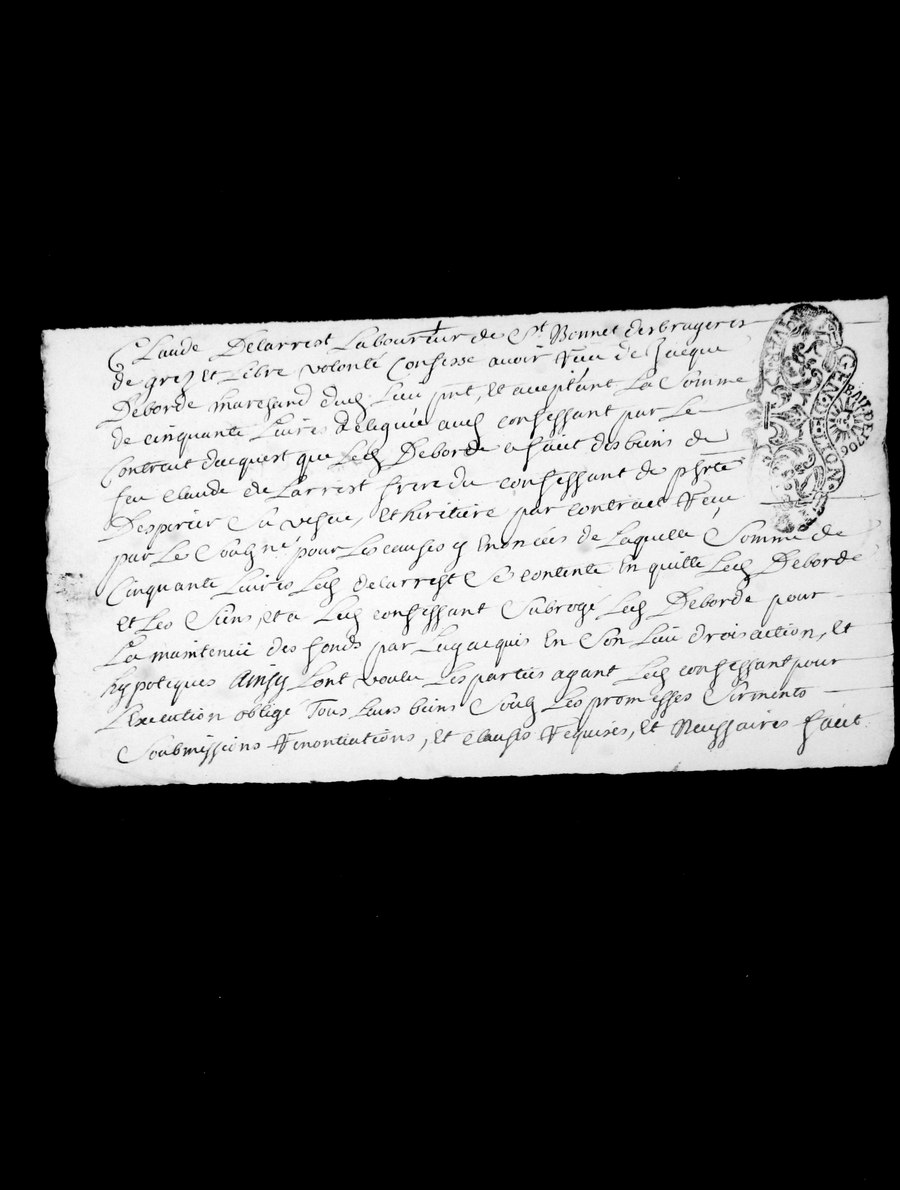 Claude Delarrest Laboureur de St Bonnet desbrugeres
de grez et Libre volonté Confesse avoir Reeu de Jacque
Deborde marchand dud. Lieu pnt, et aceptant La Somme
de cinquante Livres deleguée aud confessant par Le
Contrait dacquest que Led Deborde a fait des biens de
feu Claude de Larrest frere du confessant de
Despirier Sa vefue, et hiritiere par contract Reeu
par Le Soubgné, pour Les causes y Enoncées de Laquelle Somme de
Cinquante Livres Led Delarrest Se contente En quitte Led Deborde
et Les Siens, et a Led confessant Subrogé Led Deborde pour
La maintenüe des fonds par Luy acquis En Son Lieu drois action, Et
hypoteques Ainsy Lont voulu Les parties ayant Led confessant pour
Lexecution obligé Tous Leurs biens Soub Les promesses Sirments
Soubmissions Renontiations, et clauses Requises, et Necessaires fait
GEN. D. LION.